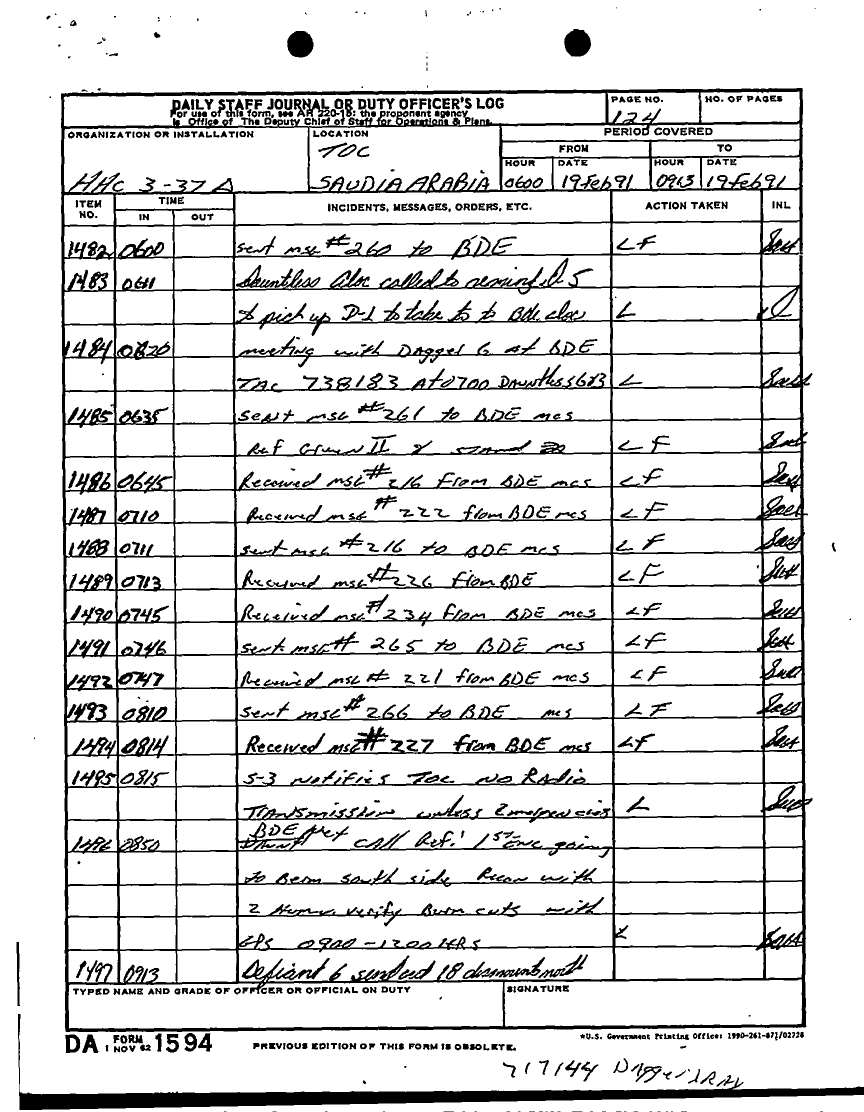 DAILY STAFF JOURNAL OR DUTY OFFICER'S LOG
For use of this form, see AR 220-15: the proponent agency
is Office of The Deputy Chief of Staff for Operations & Plans.
PAGE NO.
124
NO. OF PAGES
ORGANIZATION OR INSTALLATION
HHC 3-37 Δ
LOCATION
TOC
SAUDIA ARABIA
PERIOD COVERED
FROM TO
HOUR DATE HOUR DATE
0600 19Feb91 0913 19Feb91
ITEM NO. TIME INCIDENTS, MESSAGES, ORDERS, ETC. ACTION TAKEN INL
IN OUT
1482 0600 sent msg #260 to BDE LF
1483 0611 Dauntless Aloc called to remind
to pick up D-1 to take to to Bde aloc L
1484 0620 meeting with Dagger 6 at BDE
TAC 738183 At 0700 L
1485 0635 sent msg #261 to BDE mcs
Ref Green II & LF
1486 0645 Received msg #216 from BDE mcs LF
1487 0710 Received msg #222 from BDE mcs LF
1488 0711 sent msg #216 to BDE mcs LF
1489 0713 Received msg #226 from BDE LF
1490 0745 Received msg #234 from BDE mcs LF
1491 0746 sent msg # 265 to BDE mcs LF
1492 0747 Received msg # 221 from BDE mcs LF
1493 0810 sent msg #266 to BDE mcs LF
1494 0814 Received msg #227 from BDE mcs LF
1495 0815 S-3 notifies TOC no Radio
Transmission unless L
1496 0850 BDE net call Ref: 1st one going
to Berm south side Recon with
2 verify Berm cuts with
GPS 0900-1200 HRS L
1497 0913 Defiant 6 18 dismounts north
TYPED NAME AND GRADE OF OFFICER OR OFFICIAL ON DUTY
SIGNATURE
DA FORM 1 NOV 62 1594
PREVIOUS EDITION OF THIS FORM IS OBSOLETE.
*U.S. Government Printing Office: 1990-261-871/02728
717144 Dagger